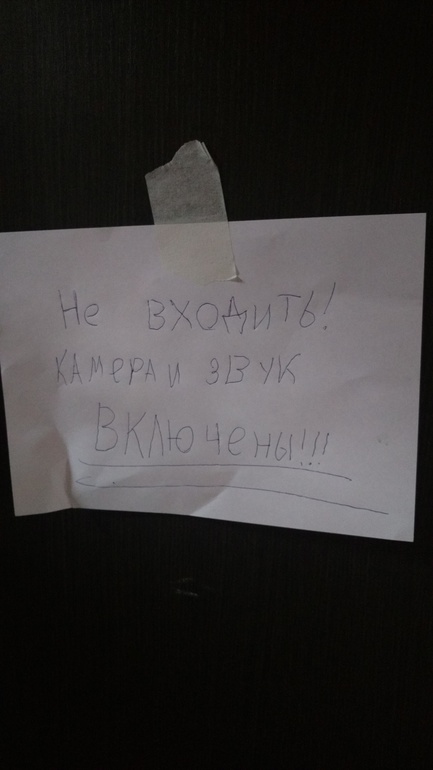 Не входить!
Камера и звук
включены!!!